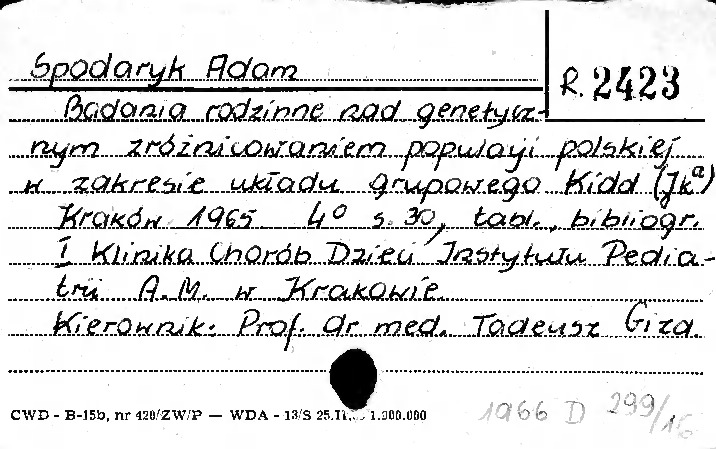 Spodaryk Adam
R. 2423
Badania rodzinne nad genetycz-
nym zróżnicowaniem populacji polskiej
w zakresie układu grupowego Kidd (Jkª)
Kraków 1965 4° s. 30, tabl., bibliogr.
I Klinika Chorób Dzieci Instytutu Pedia-
trii A.M. w Krakowie.
Kierownik: Prof. dr med. Tadeusz Giza.
CWD - B-15b, nr 420/ZW/P — WDA - 13/S 25. 1.000.000
1966 D 299/16